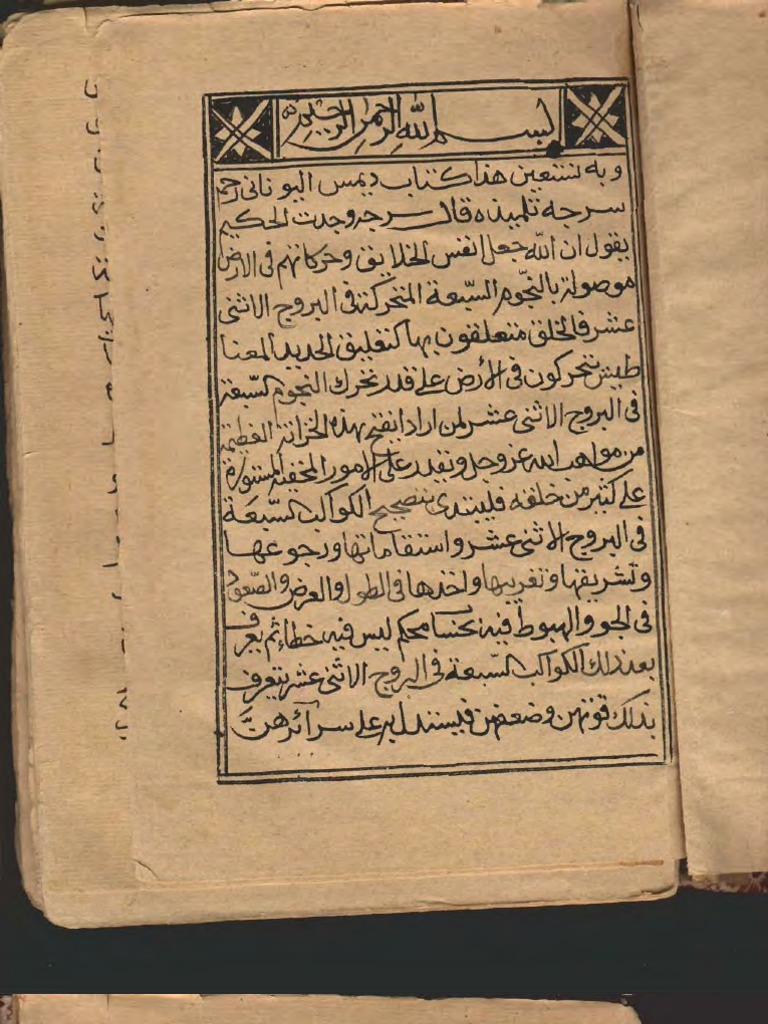 بسم الله الرحمن الرحيم
وبه نستعين هذا كتاب ديمس اليوناني رحمه
سرجه تلميذه قال سرجه وجدت الحكيم
يقول ان الله جعل انفس الخلايق وحركاتهم في الارض
موصولة بالنجوم السبعة المتحركة في البروج الاثنى
عشر فالخلق متعلقون بها كتعليق الحديد المعنا
طيس تتحركون في الأرض على قدر تحرك النجوم السبعة
في البروج الاثنى عشر لمن اراد ان يفتح بهذه الخزانة العظيمة
من مواهب الله عز وجل ويقدر على الامور المخفية المستورة
على كثير من خلقه فليبتدى بتصحيح الكواكب السبعة
في البروج الاثنى عشر واستقاماتها ورجوعها
وتشريقها وتغريبها واخذها في الطول والعرض والصعود
في الجو والهبوط فيه محكم ليس فيه خطاء ثم يعرف
بعد ذلك الكواكب السبعة في البروج الاثنى عشر يتعرف
بذلك قوتهن وضعفهن فيستدل به على سرآئرهن